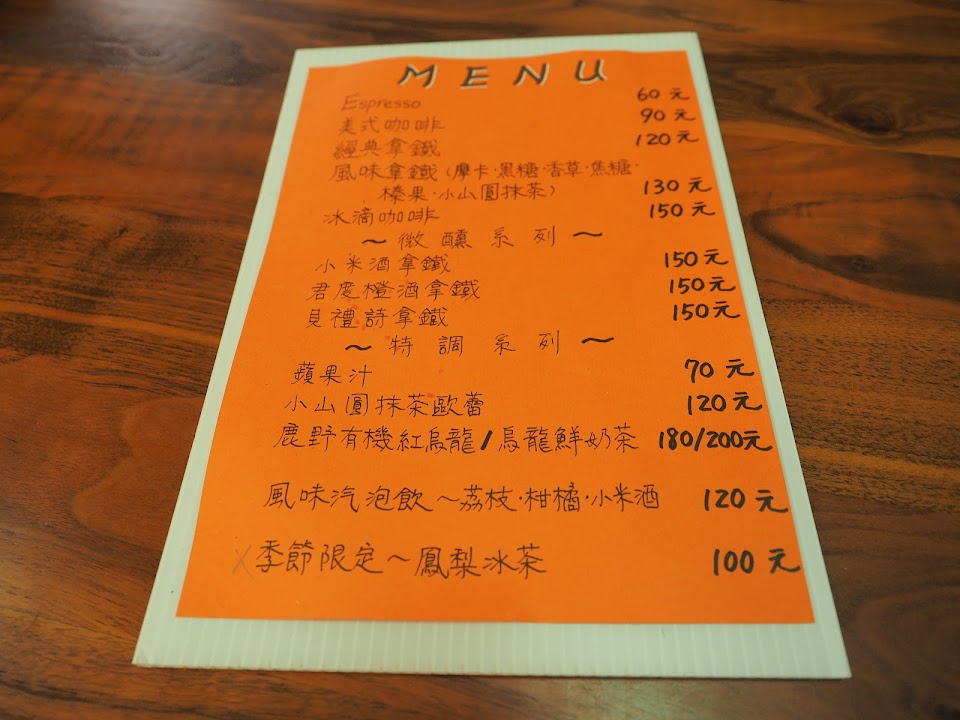 MENU
Espresso 60元
美式咖啡 90元
經典拿鐵 120元
風味拿鐵(摩卡·黑糖·香草·焦糖·
榛果·小山圓抹茶) 130元
冰滴咖啡 150元
~微醺系列~
小米酒拿鐵 150元
君度橙酒拿鐵 150元
貝禮詩拿鐵 150元
~特調系列~
蘋果汁 70元
小山圓抹茶歐蕾 120元
鹿野有機紅烏龍/烏龍鮮奶茶 180/200元
風味汽泡飲~荔枝·柑橘·小米酒 120元
X季節限定~鳳梨冰茶 100元